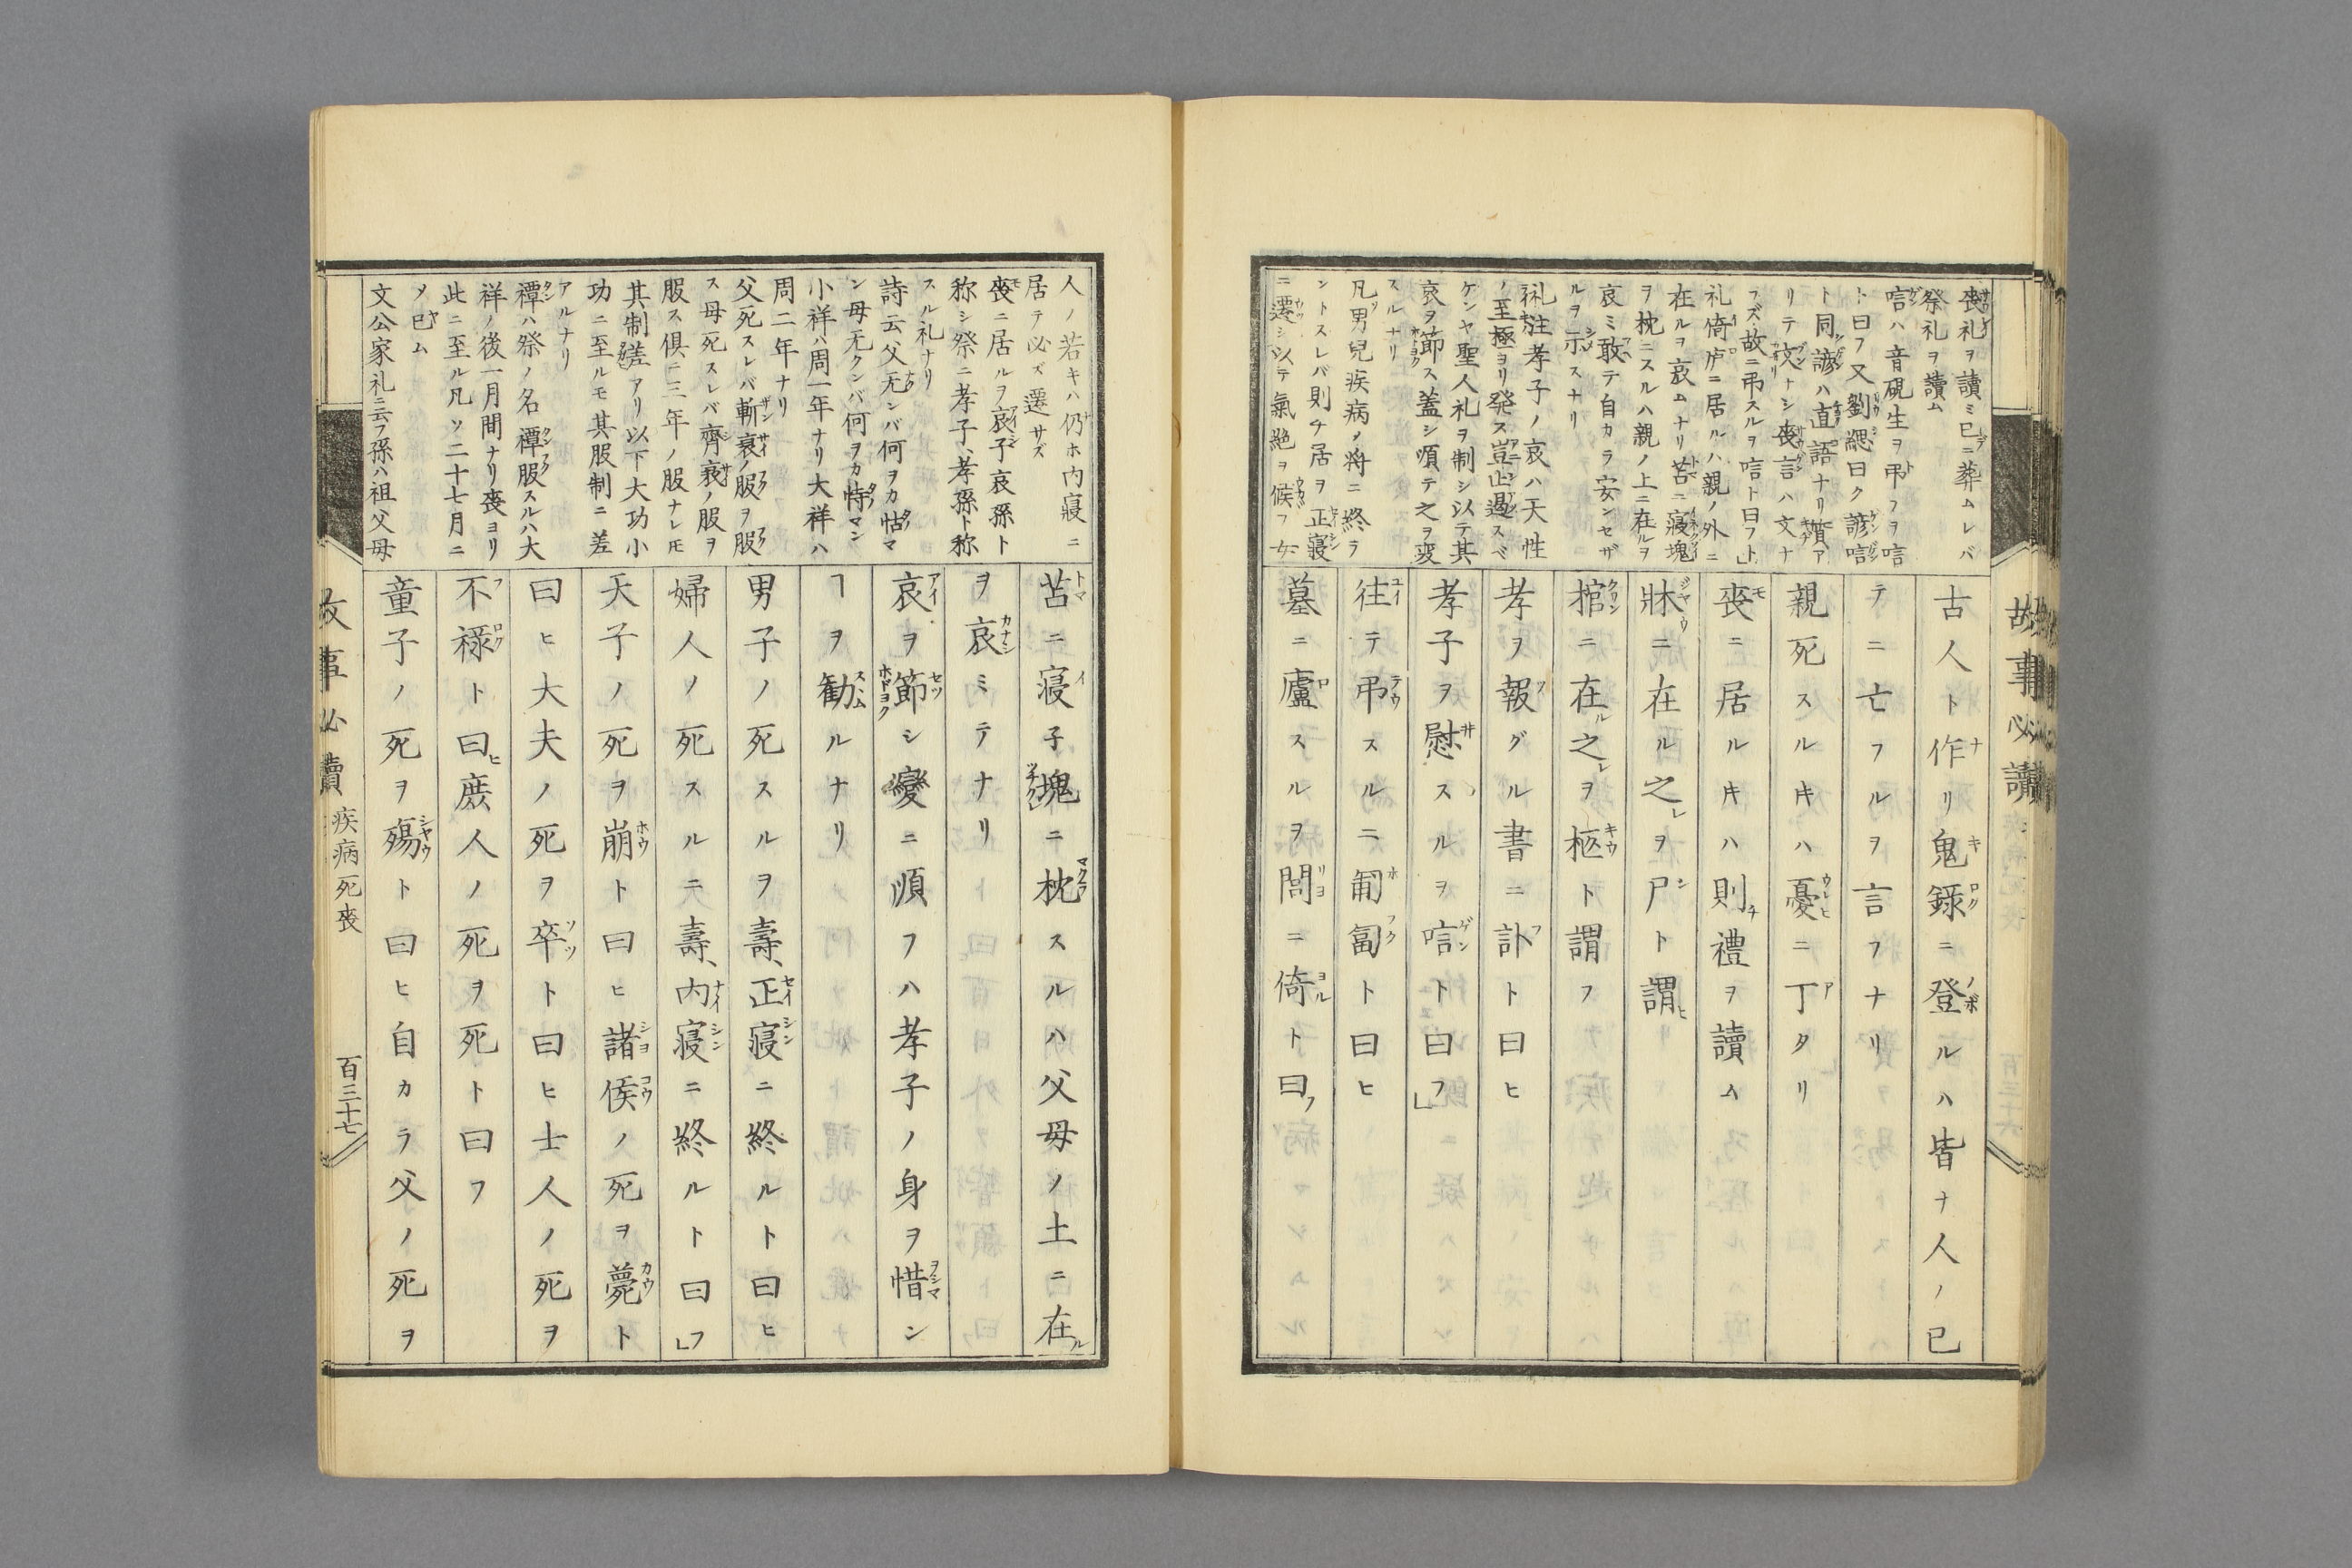 故事必讀
喪礼ヲ讀ミ已ニ葬ムレバ
祭礼ヲ讀ム
唁ハ音硯生ヲ弔フヲ唁
ト曰フ又劉勰曰ク諺唁
ト同諺ハ直語ナリ ア
リテ文ナシ喪言ハ文ナ
フズ故ニ弔スルヲ唁ト曰フ」
礼倚庐ニ居ルハ親ノ外ニ
在ルヲ哀ムナリ苫ニ寝塊
ヲ枕ニスルハ親ノ上ニ在ルヲ
哀ミ敢テ自カラ安ンセザ
ルヲ示スナリ
礼注孝子ノ哀ハ天性
ノ至極ヨリ発ス豈止遏スベ
ケンヤ聖人礼ヲ制シ以テ其
哀ヲ節ス盖シ順テ之ヲ変
スルナリ
凡ソ男兒疾病ノ將ニ終ラ
ントスレバ則チ居ヲ正寝
ニ遷シ以テ氣絶ヲ候フ女
古人ト作リ鬼録ニ登ルハ皆ナ人ノ已
テニ亡フルヲ言フナリ
親死スルキハ憂ニ丁タリ
喪ニ居ルキハ則チ禮ヲ讀ム
牀ニ在ル之レヲ尸ト謂ヒ
棺ニ在ル之レヲ柩ト謂フ
孝ヲ報グル書ニ訃ト曰ヒ
孝子ヲ慰スルヲ唁ト曰フ」
往テ弔スルニ匍匐ト曰ヒ
墓ニ廬スルヲ閭ニ倚ト曰フ
人ノ若キハ仍ホ内寝ニ
居テ必ズ遷サズ
喪ニ居ルヲ哀子哀孫ト
称シ祭ニ孝子、孝孫ト称
スル礼ナリ
詩云父无ンバ何ヲカ怙マ
ン母无クンバ何ヲカ恃マン
小祥ハ周一年ナリ大祥ハ
周二年ナリ
父死スレバ斬衰ノ服ヲ服
ス母死スレバ齊衰ノ服ヲ
服ス倶ニ三年ノ服ナレ𪜈
其制差アリ以下大功小
功ニ至ルモ其服制ニ差
アルナリ
禫ハ祭ノ名禫服スルハ大
祥ノ後一月間ナリ喪ヨリ
此ニ至ル凡ソ二十七月ニ
メ已ム
文公家礼ニ云フ孫ハ祖父母
苫ニ寝子塊ニ枕スルハ父母ノ土ニ在ル
ヲ哀ミテナリ
哀ヲ節シ變ニ順フハ孝子ノ身ヲ惜ン
ヿヲ勧ルナリ
男子ノ死スルヲ壽、正寝ニ終ルト曰ヒ
婦人ノ死スルニ壽、内寝ニ終ルト曰フ」
天子ノ死ヲ崩ト曰ヒ諸侯ノ死ヲ薨ト
曰ヒ大夫ノ死ヲ卒ト曰ヒ士人ノ死ヲ
不禄ト曰ヒ庶人ノ死ヲ死ト曰フ
童子ノ死ヲ殤ト曰ヒ自カラ父ノ死ヲ
故事必讀 疾病死喪 百三十七